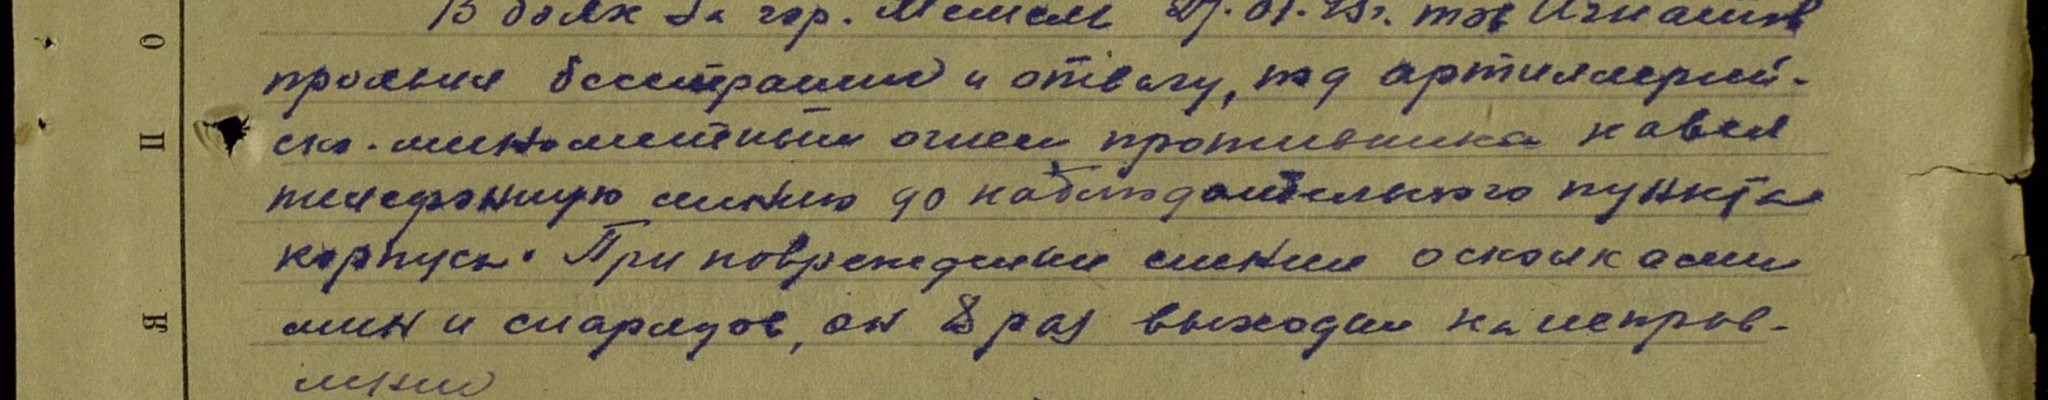 В боях за гор. Мемель 27.01.45г. тов Игнатов
проявил бесстрашие и отвагу, под артиллерий-
ско-минометным огнем противника навел
телефонную линию до наблюдательного пункта
корпуса. При повреждении линии осколками
мин и снарядов, он 8 раз выходил на исправ-
ление
О
П
Я